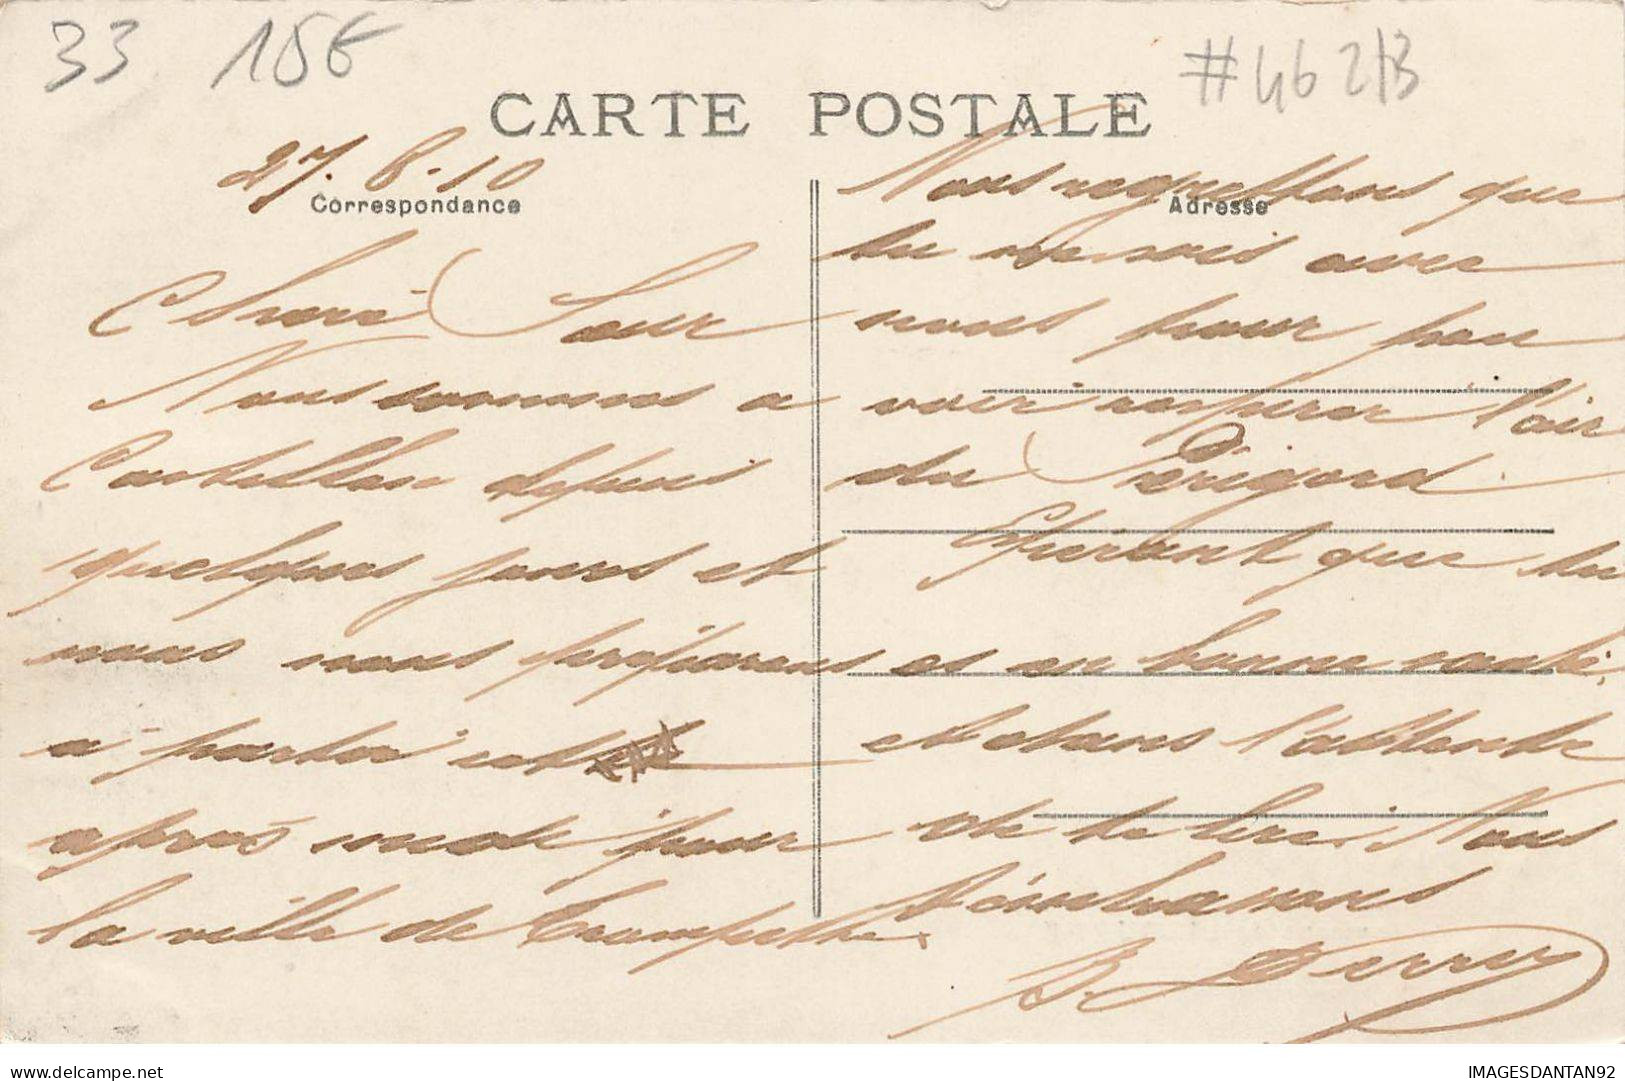 33 15€
#462/3
CARTE POSTALE
27.8.10
Correspondance
Chère Sœur
Nous sommes a
Castillon depuis
quelques jours et
nous nous préparons
à partir cet
après midi pour
la ville de
Nous regrettons que
Adresse
tu ne sois avec
nous pour pou
voir respirer l'air
du Périgord
Espérant que tu
es en bonne santé
et dans l'attente
de te lire. Nous
t'embrassons
B.
delcampe.net
IMAGESDANTAN92